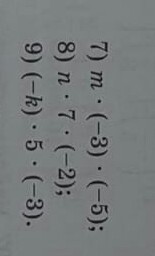 7) m · (−3) · (−5);
8) n · 7 · (−2);
9) (−k) · 5 · (−3).